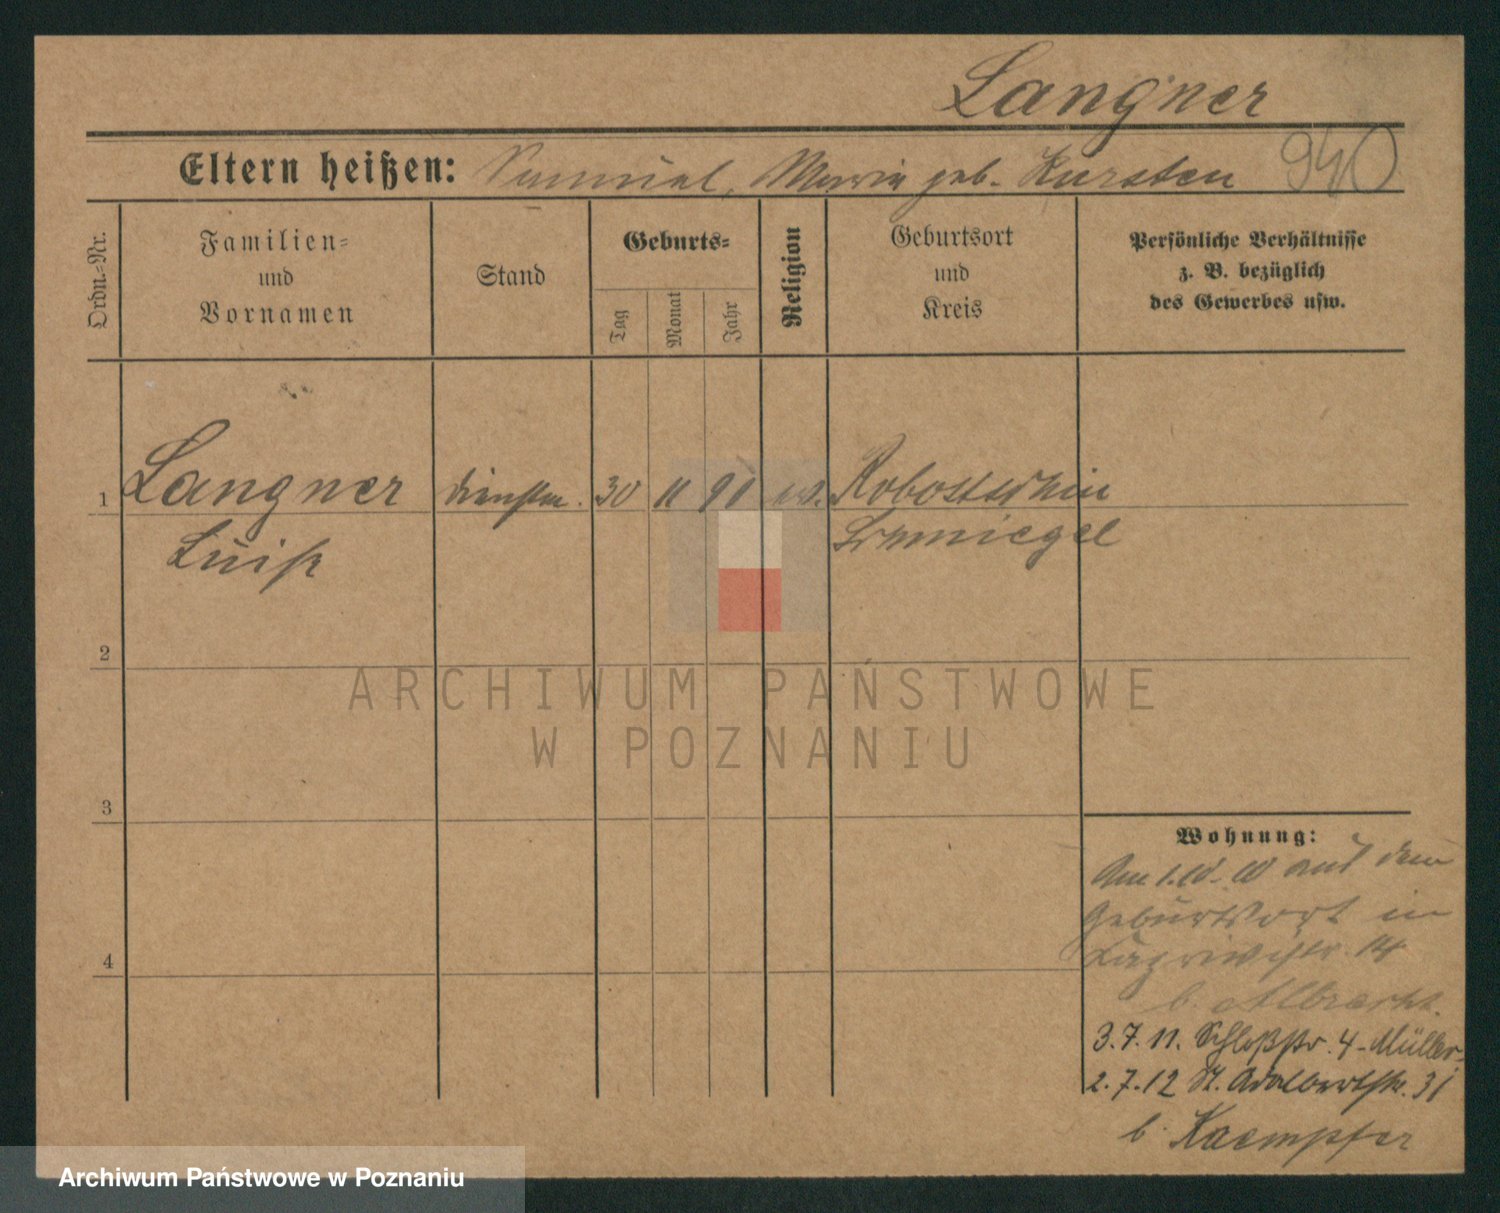 Langner
Eltern heißen: Samuel, Marie geb. Kursten 940
Ordn.-Nr.
Familien-
und
Vornamen
Stand
Geburts-
Tag
Monat
Jahr
Religion
Geburtsort
und
Kreis
Persönliche Verhältnisse
z. B. bezüglich
des Gewerbes usw.
1 Langner dienstm. 30 11 91 ev.
Luise Schmiegel
2
3
4
ARCHIWUM PAŃSTWOWE
W POZNANIU
Wohnung:
Am 1.10.10 aus dem
Geburtsort in
14
b. Albrecht.
3.7.11. Schloßstr. 4 - Müller -
2.7.12 St. Adalbertstr. 31
b. Kaempfer
Archiwum Państwowe w Poznaniu